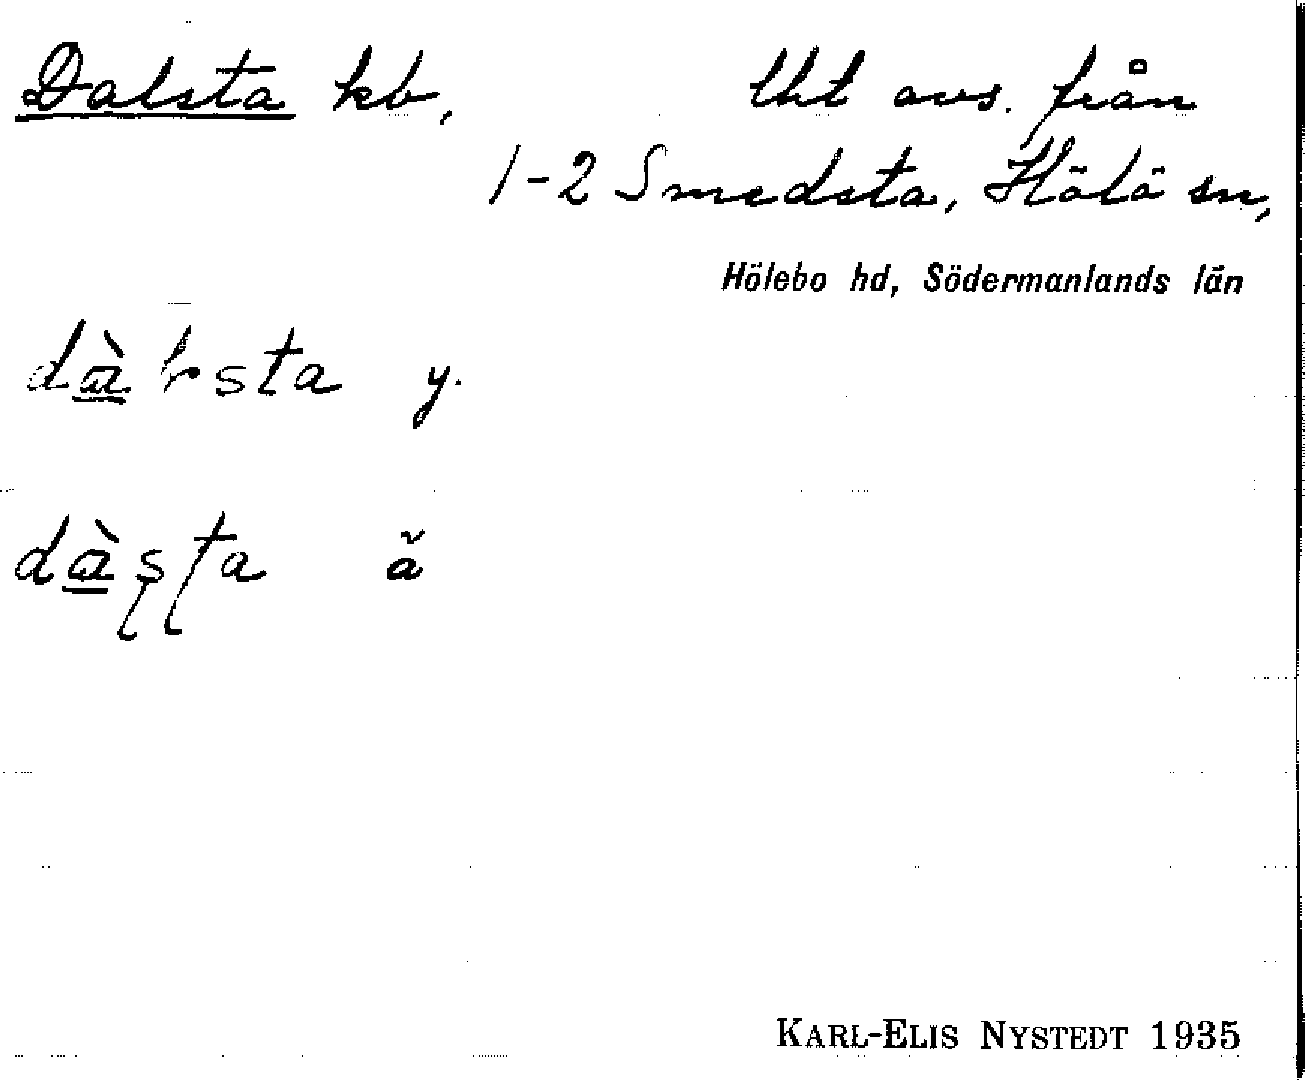 Dalsta kb, lht avs. från
1-2 Smedsta, Hölö sn,
Hölebo hd, Södermanlands län
dàlsta y.
dàṣṭa ă
KARL-ELIS NYSTEDT 1935